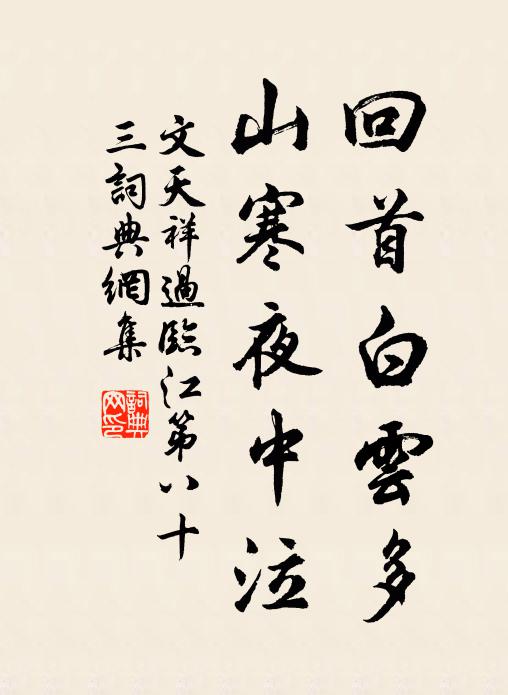 回首白雲多
山寒夜中泣
文天祥過臨江第八十
三詞典網集
詞典网印